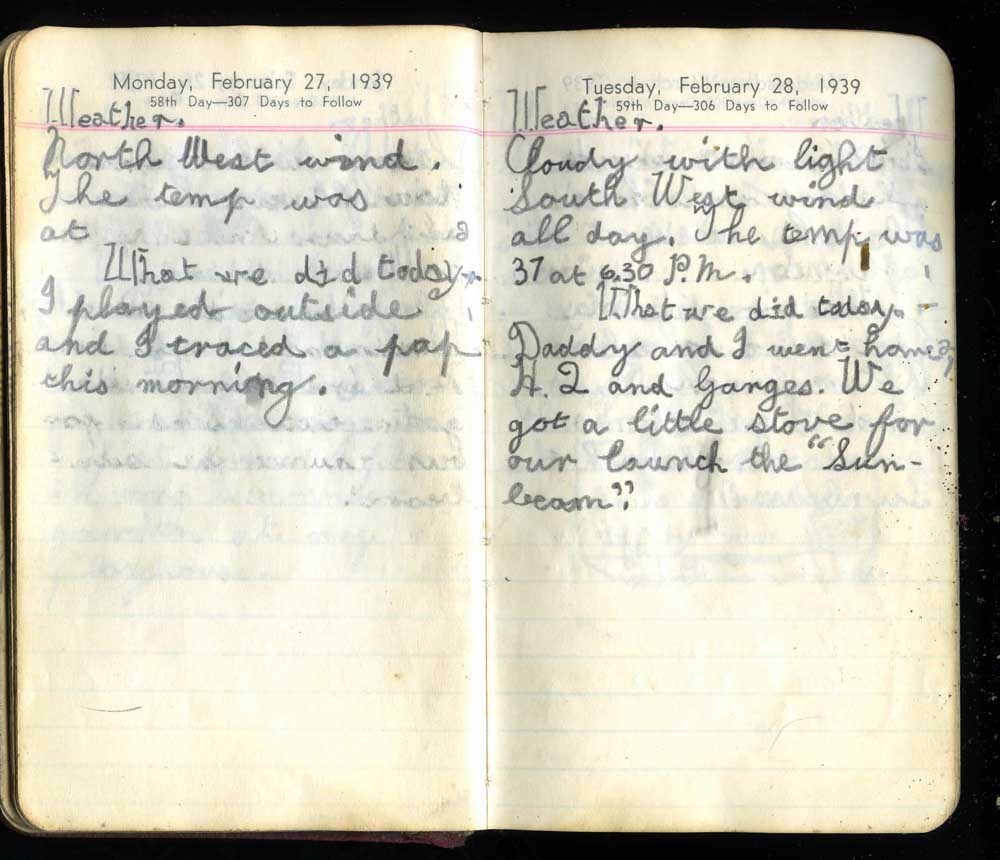 Monday, February 27, 1939
58th Day—307 Days to Follow
Weather.
North West wind.
The temp was
at
What we did today.
I played outside
and I traced a pap
this morning.
Tuesday, February 28, 1939
59th Day—306 Days to Follow
Weather.
Cloudy with light
South West wind
all day. The temp was
37 at 6.30 P.M.
What we did today.
Daddy and I went
H. Q and Ganges. We
got a little stove for
our launch the "Sun-
beam".